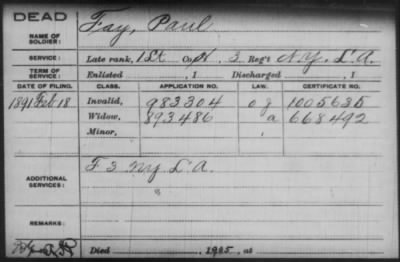 DEAD
NAME OF SOLDIER: Fay, Paul
SERVICE: Late rank, 1st Co. H, 3 Reg't N.Y. L.A.
TERM OF SERVICE: Enlisted , 1 Discharged , 1
DATE OF FILING. CLASS. APPLICATION NO. LAW. CERTIFICATE NO.
1891 Feb 18 Invalid, 983304 1005635
Widow, 893486 a 668492
Minor,
ADDITIONAL SERVICES: F 3 NY L.A.
REMARKS:
Died 1905, at